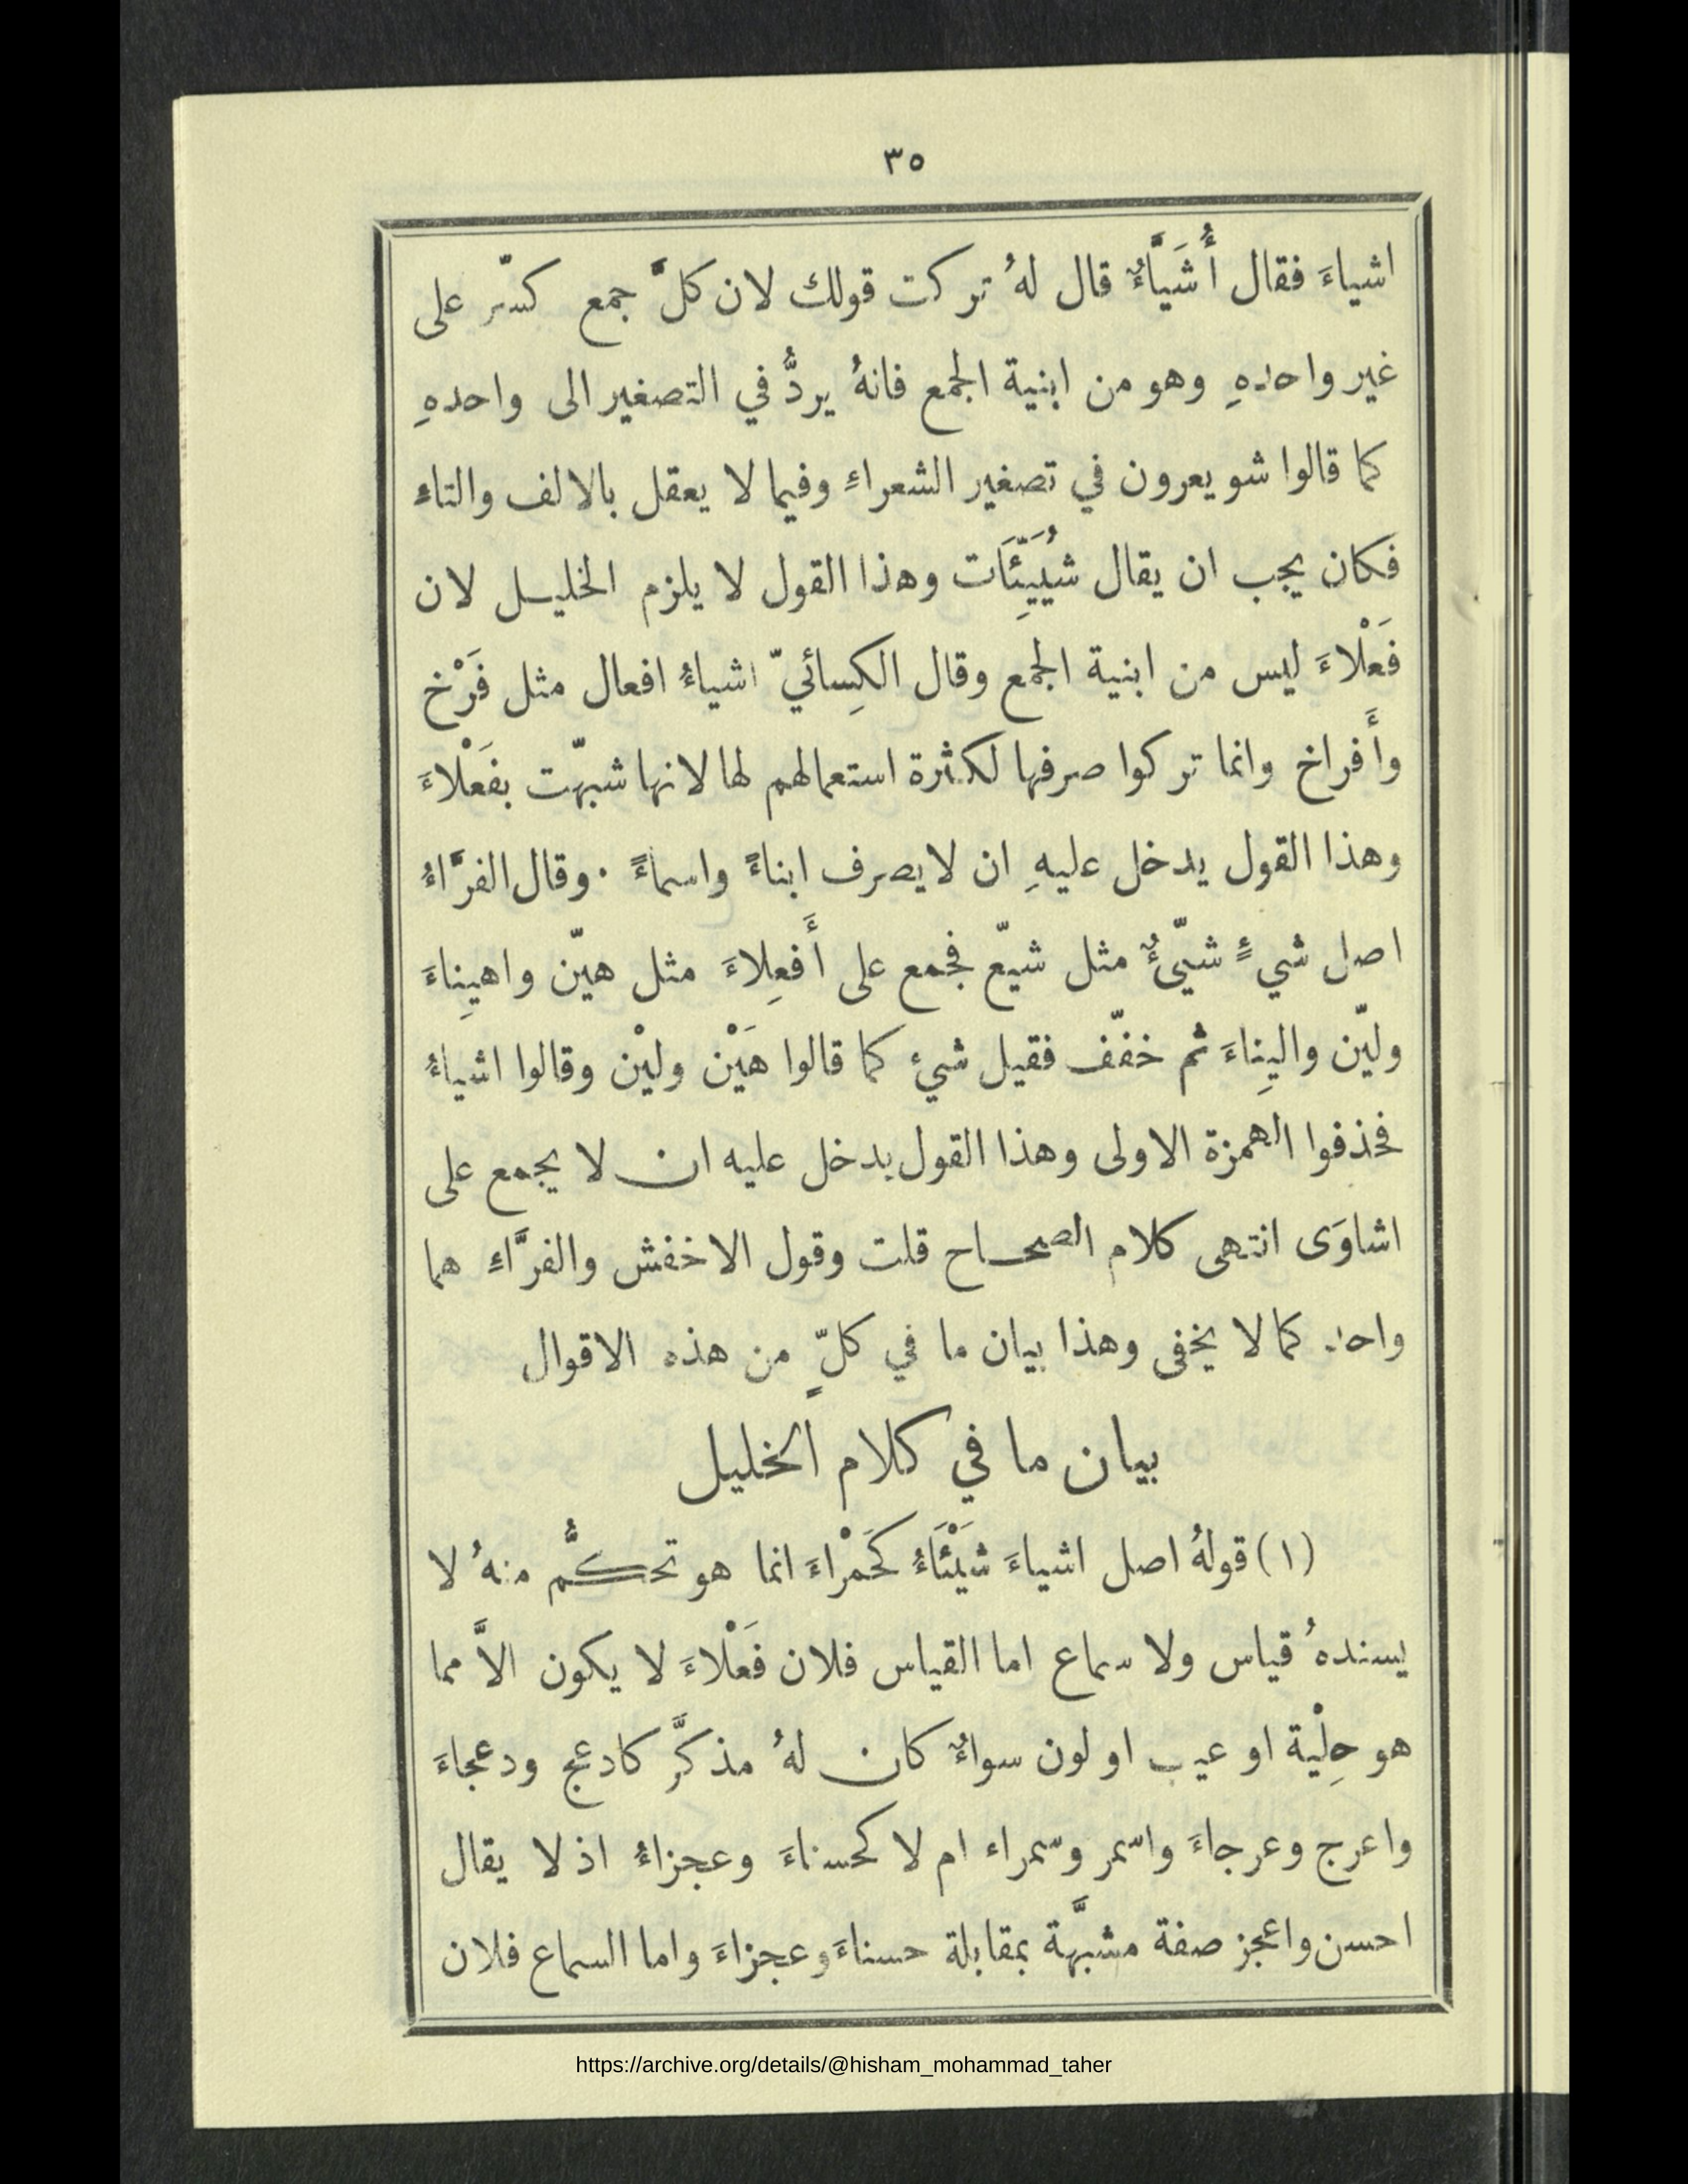 ٣٥
اشياءَ فقال أُشَيَّاءٌ قال لهُ تركت قولك لان كلَّ جمع كسّر على
غير واحدهِ وهو من ابنية الجمع فانهُ يردُّ في التصغير الى واحدهِ
كما قالوا شويعرون في تصغير الشعراءِ وفيما لا يعقل بالالف والتاءِ
فكان يجب ان يقال شُيَيِّئَات وهذا القول لا يلزم الخليل لان
فَعْلاءَ ليس من ابنية الجمع وقال الكِسائيّ اشياءُ افعال مثل فَرْخ
وأَفراخ وانما تركوا صرفها لكثرة استعمالهم لها لانها شبّهت بفَعْلاءَ
وهذا القول يدخل عليهِ ان لا يصرف ابناءً واسماءً . وقال الفرَّاءُ
اصل شيءٍ شيّئٌ مثل شيّع فجمع على أَفعِلاءَ مثل هيّن واهيِناءَ
وليّن واليِناءَ ثم خفّف فقيل شيء كما قالوا هَيْن وليْن وقالوا اشياءُ
فحذفوا الهمزة الاولى وهذا القول يدخل عليه ان لا يجمع على
اشاوَى انتهى كلام الصحاح قلت وقول الاخفش والفرَّاءِ هما
واحد كما لا يخفى وهذا بيان ما في كلٍّ من هذه الاقوال
بيان ما في كلام الخليل
(١) قولهُ اصل اشياءَ شَيْئَاءُ كَحَمْراءَ انما هو تحكُّم منهُ لا
يسندهُ قياس ولا سماع اما القياس فلان فَعْلاءَ لا يكون الاَّ مما
هو حِلْية او عيب او لون سواءٌ كان لهُ مذكَّر كادعج ودعجاءَ
واعرج وعرجاءَ واسمر وسمراء ام لا كحسناءَ وعجزاءُ اذ لا يقال
احسن واعجز صفة مشبَّهة بمقابلة حسناءَ وعجزاءَ واما السماع فلان
https://archive.org/details/@hisham_mohammad_taher